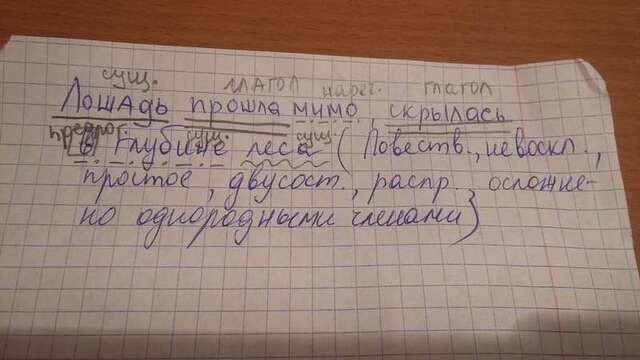 сущ. глагол нареч. глагол
Лошадь прошла мимо, скрылась
предлог сущ. сущ.
в глубине леса (Повеств., невоскл.,
простое, двусост., распр., осложне-
но однородными членами)